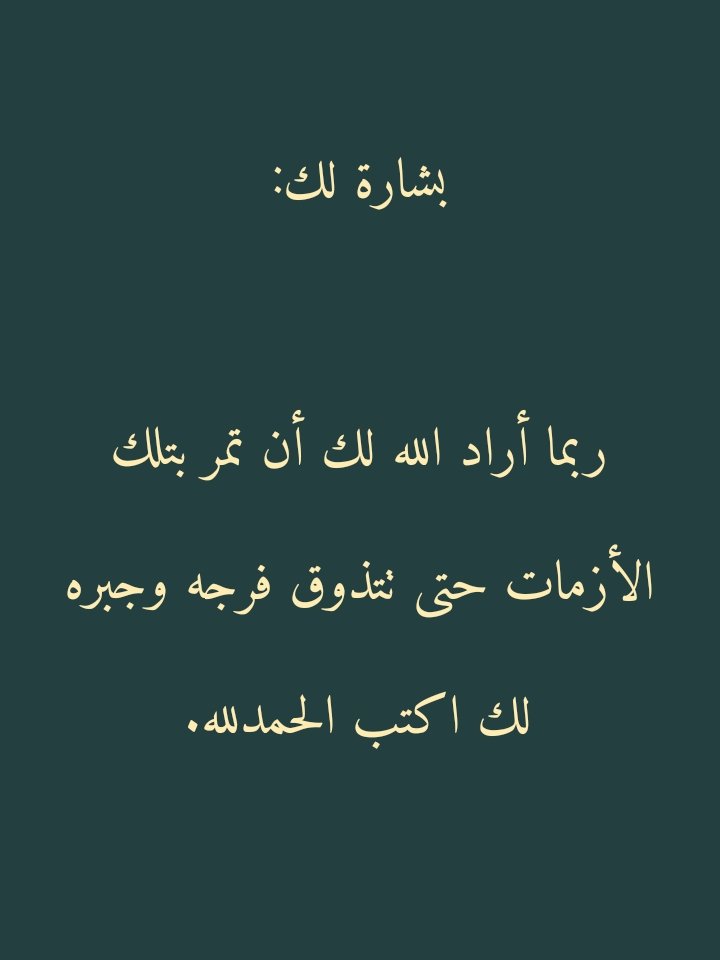 بشارة لك:
ربما أراد الله لك أن تمر بتلك
الأزمات حتى تتذوق فرجه وجبره
لك اكتب الحمدلله.